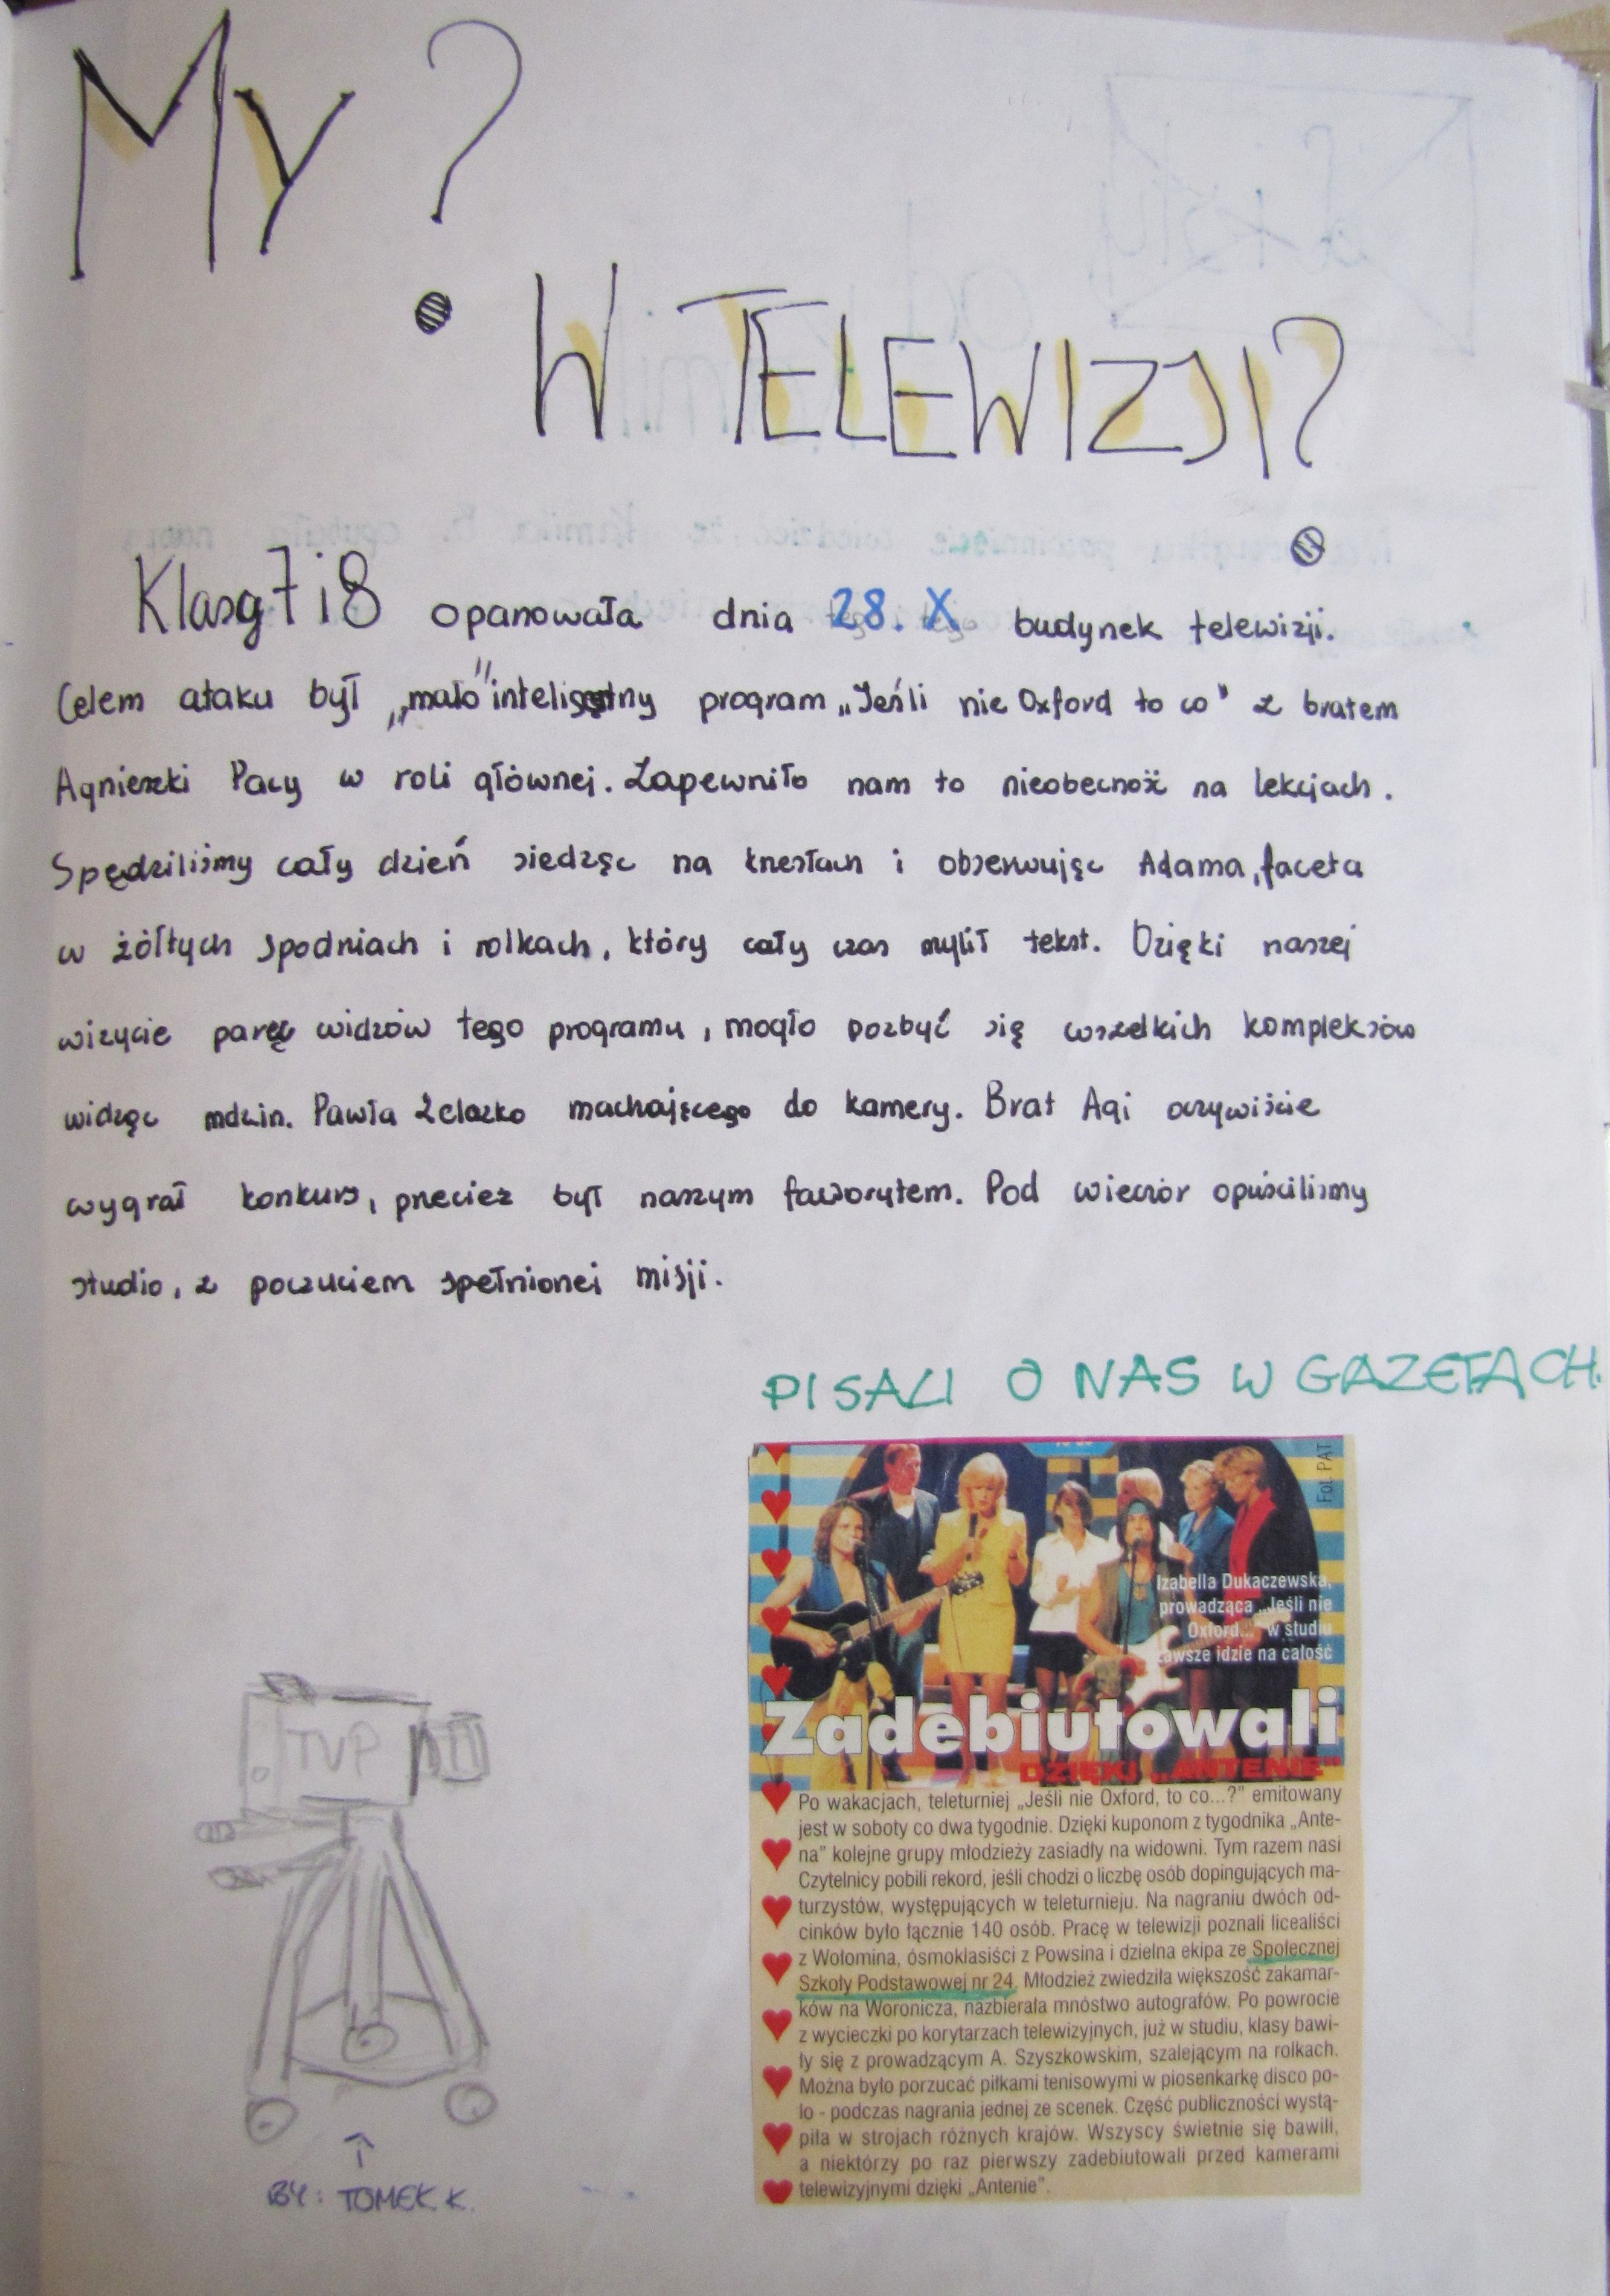 MY?
W TELEWIZJI?
Klasę 7 i 8 opanowała dnia 28. X budynek telewizji.
Celem ataku był „mało" inteligentny program „Jeśli nie Oxford to co" z bratem
Agnieszki Pacy w roli głównej. Zapewniło nam to nieobecność na lekcjach.
Spędziliśmy cały dzień siedząc na krzesłach i obserwując Adama, faceta
w żółtych spodniach i rolkach, który cały czas mylił tekst. Dzięki naszej
wizycie parę widzów tego programu, mogło pozbyć się wszelkich kompleksów
widząc mdzin. Pawła Żelazko machającego do kamery. Brat Agi oczywiście
wygrał konkurs, przecież był naszym faworytem. Pod wieczór opuściliśmy
studio, z poczuciem spełnionej misji.
PISALI O NAS W GAZETACH.
Fot. PAT
Izabella Dukaczewska,
prowadząca „Jeśli nie
Oxford..." w studiu
zawsze idzie na całość
Zadebiutowali
DZIĘKI „ANTENIE"
Po wakacjach, teleturniej „Jeśli nie Oxford, to co...?" emitowany
jest w soboty co dwa tygodnie. Dzięki kuponom z tygodnika „Ante-
na" kolejne grupy młodzieży zasiadły na widowni. Tym razem nasi
Czytelnicy pobili rekord, jeśli chodzi o liczbę osób dopingujących ma-
turzystów, występujących w teleturnieju. Na nagraniu dwóch od-
cinków było łącznie 140 osób. Pracę w telewizji poznali licealiści
z Wołomina, ósmoklasiści z Powsina i dzielna ekipa ze Społecznej
Szkoły Podstawowej nr 24. Młodzież zwiedziła większość zakamar-
ków na Woronicza, nazbierała mnóstwo autografów. Po powrocie
z wycieczki po korytarzach telewizyjnych, już w studiu, klasy bawi-
ły się z prowadzącym A. Szyszkowskim, szalejącym na rolkach.
Można było porzucać piłkami tenisowymi w piosenkarkę disco po-
lo - podczas nagrania jednej ze scenek. Część publiczności wystą-
piła w strojach różnych krajów. Wszyscy świetnie się bawili,
a niektórzy po raz pierwszy zadebiutowali przed kamerami
telewizyjnymi dzięki „Antenie".
TVP
BY: TOMEK K.